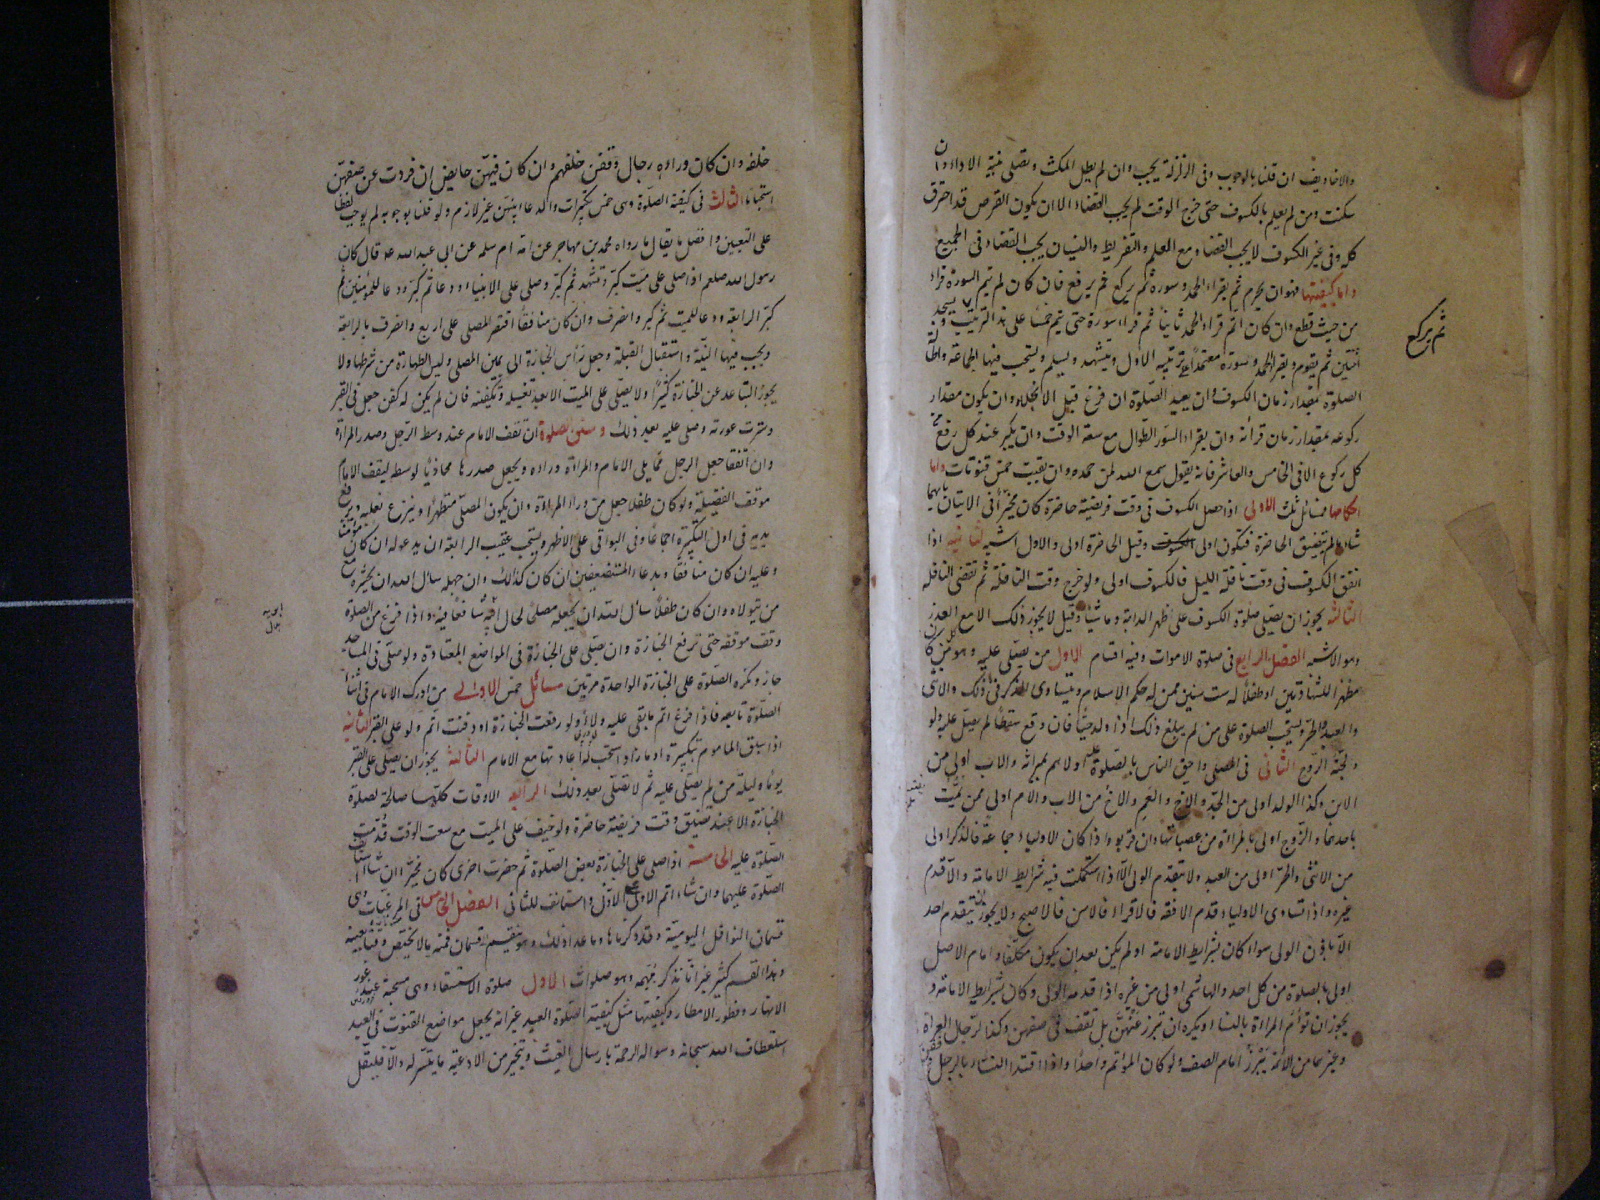 والاخاويف ان قلنا بالوجوب وفى الزلزلة يجب وان لم يطل المكث ويصلى بنية الاداء وان
سكنت ومن لم يعلم بالكسوف حتى خرج الوقت لم يجب القضاء الا ان يكون القرص قد احترق
كله وفى غير الكسوف لا يجب القضاء ومع العلم والتفريط والنسيان يجب القضاء فى الجميع
واما كيفيتها فهو ان يحرم ثم يقراء الحمد وسورة ثم يركع ثم يرفع فان كان لم يتم السورة قراء
من حيث قطع وان كان اتم قراء الحمد ثانيا ثم قراء سورة حتى يتم خمسا على هذا الترتيب ويسجد
اثنتين ثم يقوم ويقراء الحمد وسورة معتمدا ترتيبه الاول ويتشهد ويسلم ويستحب فيها الجماعة واطالة
ثم يركع
الصلوة بمقدار زمان الكسوف وان يعيد الصلوة ان فرغ قبل الانجلاء وان يكون مقدار
ركوعه بمقدار زمان قرأته وان يقراء السور الطوال مع سعة الوقت وان يكبر عند كل رفع من
كل ركوع الا فى الخامس والعاشر فانه يقول سمع الله لمن حمده وان يقنت خمس قنوتات واما
احكامها فمسائل ثلث الاولى اذا حصل الكسوف فى وقت فريضة حاضرة كان مخيرا فى الاتيان بايهما
شاء ما لم تتضيق الحاضرة فتكون اولى وقيل الحاضرة اولى والاول اشبه الثانية اذا
اتفق الكسوف فى وقت نافلة الليل فالكسوف اولى ولو خرج وقت النافلة ثم تقضى النافلة
الثالثة يجوز ان يصلى صلوة الكسوف على ظهر الدابة وماشيا وقيل لا يجوز ذلك الا مع العذر
وهو الاشبه الفصل الرابع فى صلوة الاموات وفيه اقسام الاول من يصلى عليه وهو كل من كان
مظهرا للشهادتين او طفلا له ست سنين ممن له حكم الاسلام ويتساوى الذكر فى ذلك والانثى
والعبد والحر ويستحب الصلوة على من لم يبلغ ذلك اذا ولد حيا فان وقع سقطا لم يصل عليه ولو
ولجته الروح الثانى فى المصلى واحق الناس بالصلوة عليه اولاهم بميراثه والاب اولى من
الابن وكذا الولد اولى من الجد والاخ والعم والاخ من الاب والام اولى ممن يمت
باحدهما والزوج اولى بالمراة من عصباتها وان قربوا واذا كان الاولياء جماعة فالذكر اولى
من الانثى والحر اولى من العبد ولا يتقدم الولى الا اذا استكملت فيه شرايط الامامة والا قدم
غيره واذا تساوى الاولياء قدم الافقه فالاقراء فالاسن فالاصبح ولا يجوز ان يتقدم احد
الا باذن الولى سواء كان بشرايط الامامة او لم يكن بعد ان يكون مكلفا وامام الاصل
اولى بالصلوة من كل احد والهاشمى اولى من غيره اذا قدمه الولى وكان بشرايط الامامة و
يجوز ان تؤم المراة بالنساء ويكره ان تبرز عنهن بل تقف فى صفهن وكذا الرجل العراة
وغيرهما من الائمة يبرز امام الصف ولو كان المؤتم واحدا واذا اقتدا النساء بالرجل وقفن
خلفه وان كان وراءه رجال وقفن خلفهم وان كان فيهن حايض انفردت عن صفهن
استحبابا الثالث فى كيفية الصلوة وهى خمس تكبيرات والدعا بينهن غير لازم ولو قلنا بوجوبه لم يوجب لفظا
على التعيين وافضل ما يقال ما رواه محمد بن مهاجر عن امه ام سلمه عن ابى عبد الله عه قال كان
رسول الله صلعم اذا صلى على ميت كبر وتشهد ثم كبر وصلى على الانبياء ودعا ثم كبر ودعا للمؤمنين ثم
كبر الرابعة ودعا للميت ثم كبر وانصرف وان كان منافقا اقتصر المصلى على اربع وانصرف بالرابعة
ويجب فيها النية واستقبال القبلة وجعل رأس الجنازة الى يمين المصلى وليس الطهارة من شرطها ولا
يجوز التباعد عن الجنازة كثيرا ولا يصلى على الميت الا بعد تغسيله وتكفينه فان لم يكن له كفن جعل فى القبر
وسترت عورته وصلى عليه بعد ذلك وسنن الصلوة ان تقف الامام عند وسط الرجل وصدر المراة
وان اتفقا جعل الرجل مما يلى الامام والمراة وراءه ويجعل صدرها محاذيا لوسطه ليقف الامام
موقف الفضيلة ولو كان طفلا جعل من وراء المراة وان يكون المصلى متطهرا وينزع نعليه ويرفع
يديه فى اول تكبيرة اجماعا وفى البواقى على الاظهر ويستحب عقيب الرابعة ان يدعو له ان كان مؤمنا
وعليه ان كان منافقا وبدعاء المستضعفين ان كان كذلك وان جهله سال الله ان يحشره مع
من تولاه وان كان طفلا سال الله ان يجعله مصلحا لحال ابيه شافعا فيه واذا فرغ من الصلوة
وقف موقفه حتى ترفع الجنازة وان يصلى على الجنازة فى المواضع المعتادة ولو صلى فى المساجد
جاز وتكره الصلوة على الجنازة الواحدة مرتين مسائل خمس الاولى من ادرك الامام فى اثناء
الصلوة تابعه فاذا فرغ اتم ما بقى عليه ولاء ولو رفعت الجنازة او دفنت اتم ولو على القبر الثانية
اذا سبق الماموم بتكبيرة او ما زاد استحب له اعادتها مع الامام الثالثة يجوز ان يصلى على القبر
يوما وليلة من لم يصلى عليه ثم لا يصلى بعد ذلك الرابعة الاوقات كلها صالحة لصلوة
الجنازة الا عند تضيق وقت فريضة حاضرة ولو خيف على الميت مع سعت الوقت قدمت
الصلوة عليه الخامسة اذا صلى على الجنازة بعض الصلوة ثم حضرت اخرى كان مخيرا ان شاء استانف
الصلوة عليهما وان شاء اتم الاولى على الاول واستانف للثانى الفصل الخامس فى المرغبات وهى
قسمان النوافل اليومية وقد ذكرناها وما عدا ذلك وهو ينقسم قسمان فمنه ما لا يختص وقتا بعينه
وهذا القسم كثير غير انا نذكر مهمه وهو صلوات الاول صلوة الاستسقاء وهى مستحبة عند غور
الانهار وفتور الامطار وكيفيتها مثل كيفية صلوة العيد غير انه يجعل مواضع القنوت فى العيد
استعطاف الله سبحانه وسواله الرحمة بارسال الغيث ويتخير من الادعية ما يتيسر له والا فليقل